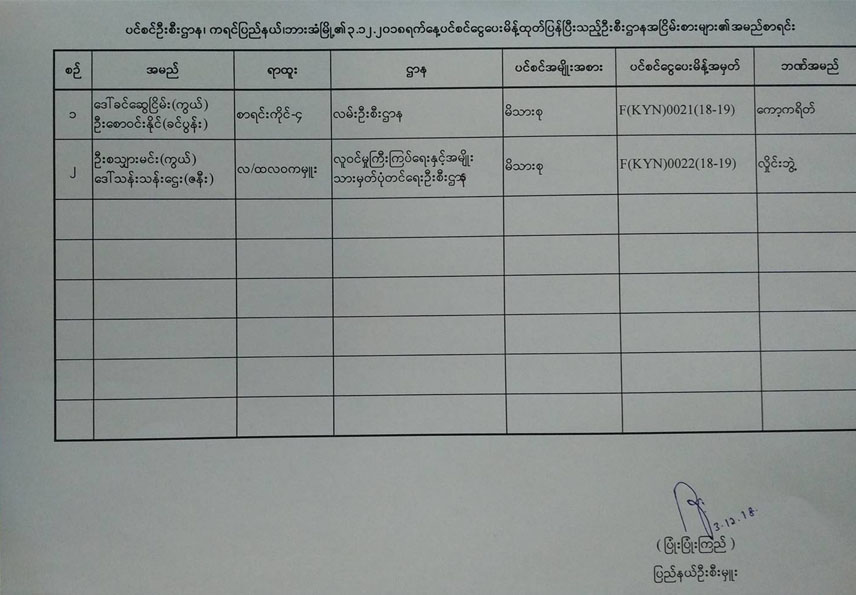 ပင်စင်ဦးစီးဌာန၊ ကရင်ပြည်နယ်၊ဘားအံမြို့၏၃.၁၂.၂၀၁၈ရက်နေ့ပင်စင်ငွေပေးမိန့်ထုတ်ပြန်ပြီးသည့်ဦးစီးဌာနအငြိမ်းစားများ၏အမည်စာရင်း
စဉ် အမည် ရာထူး ဌာန ပင်စင်အမျိုးအစား ပင်စင်ငွေပေးမိန့်အမှတ် ဘဏ်အမည်
၁ ဒေါ်ခင်ဆွေငြိမ်း(ကွယ်) စာရင်းကိုင်-၄ လမ်းဦးစီးဌာန မိသားစု F(KYN)0021(18-19) ကော့ကရိတ်
ဦးစောဝင်းနိုင်(ခင်ပွန်း)
၂ ဦးစသျှားမင်း(ကွယ်) လ/ထလဝကမှူး လူဝင်မှုကြီးကြပ်ရေးနှင့်အမျိုး မိသားစု F(KYN)0022(18-19) လှိုင်းဘွဲ့
ဒေါ်သန်းသန်းဌေး(ဇနီး) သားမှတ်ပုံတင်ရေးဦးစီးဌာန
3.12.18.
(ပြုံးပြုံးကြည်)
ပြည်နယ်ဦးစီးမှူး